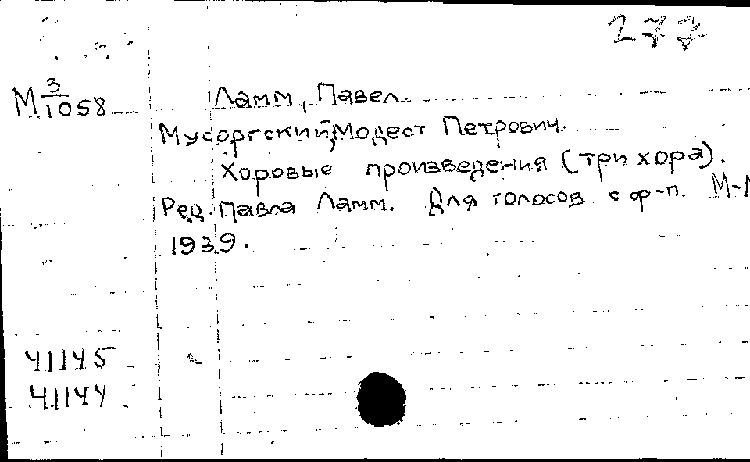 277
М 3/1058 Ламм, Павел.
Мусоргский, Модест Петрович.
Хоровые произведения (три хора).
Ред. Павла Ламм. Для голосов с ф-п.
1939.
41145
41144